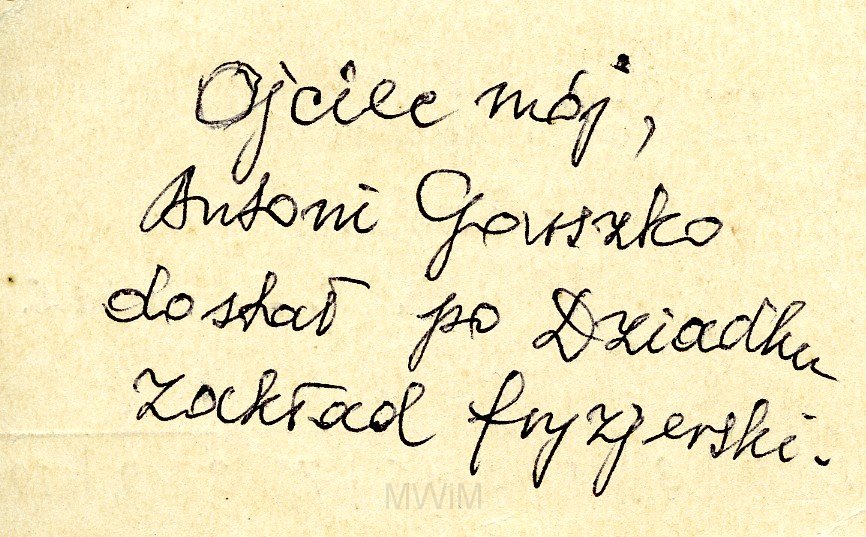 Ojciec mój,
Antoni Gouszko
dostał po Dziadku
zakład fryzjerski.
MWiM